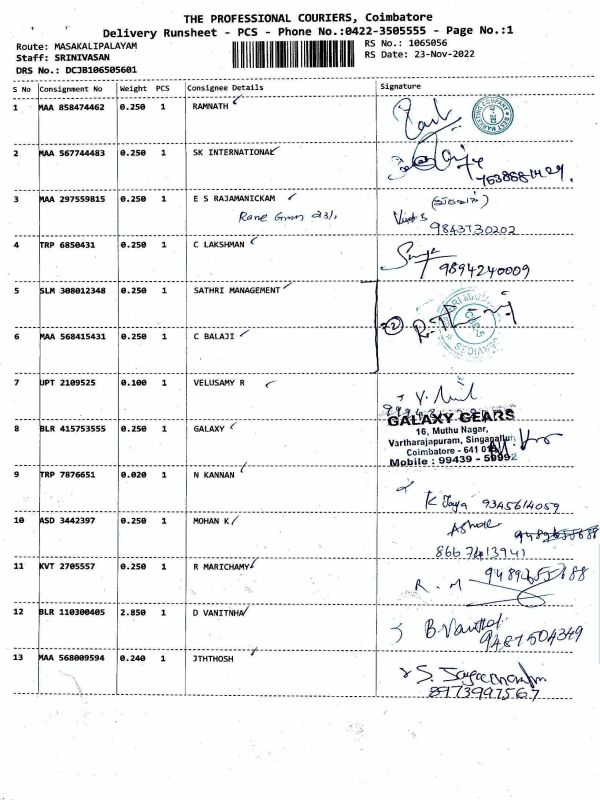 THE PROFESSIONAL COURIERS, Coimbatore
Delivery Runsheet - PCS - Phone No.:0422-3505555 - Page No.:1
Route: MASAKALIPALAYAM
RS No.: 1065056
Staff: SRINIVASAN
RS Date: 23-Nov-2022
DRS No.: DCJB106505601
S No Consignment No Weight PCS Consignee Details Signature
1 MAA 858474462 0.250 1 RAMNATH
2 MAA 567744483 0.250 1 SK INTERNATIONAL
3 MAA 297559815 0.150 1 E S RAJAMANICKAM
9843730202
4 TRP 6850431 0.250 1 C LAKSHMAN
9894240009
5 SLM 308012348 0.250 1 SATHRI MANAGEMENT
6 MAA 568415431 0.250 1 C BALAJI
7 UPT 2109525 0.100 1 VELUSAMY R
8 BLR 415753555 0.250 1 GALAXY
GALAXY GEARS
16, Muthu Nagar,
Vartharajapuram, Singanallur,
Coimbatore - 641
Mobile : 99439 -
9 TRP 7876651 0.020 1 N KANNAN
K Jaya 9345614059
10 ASD 3442397 0.250 1 MOHAN K
Ashok
8667413941
11 KVT 2705557 0.250 1 R MARICHAMY
R. M
12 BLR 110300405 2.850 1 D VANITNHA
9487504349
13 MAA 568009594 0.240 1 JTHTHOSH
8973997567